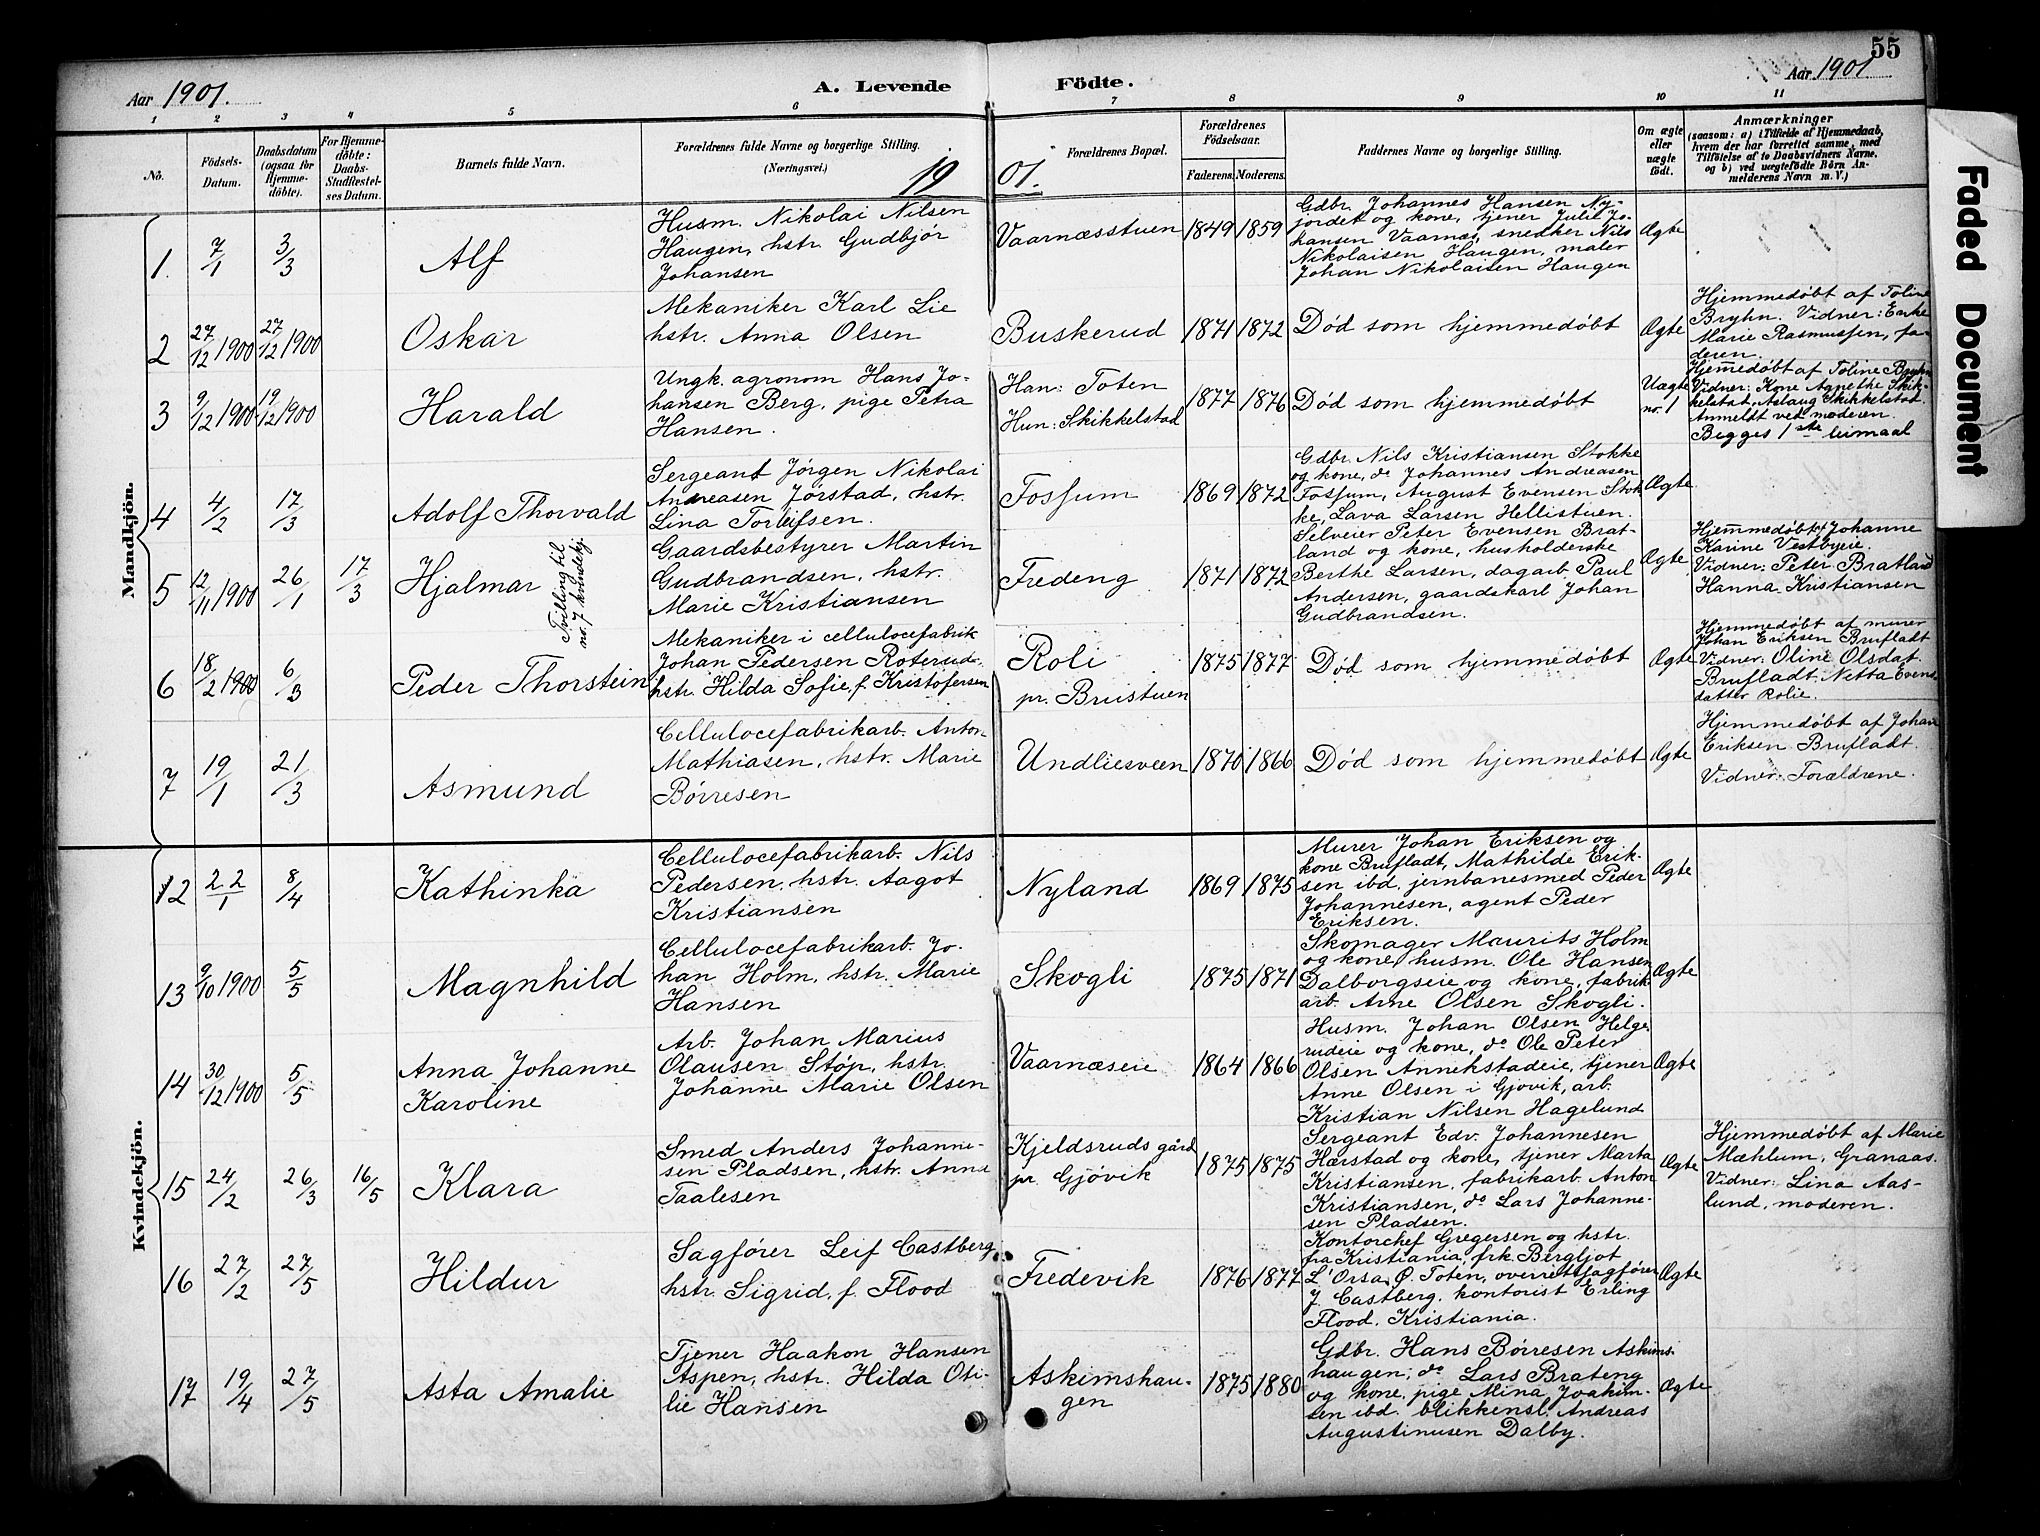 55
Aar 1901.
A. Levende Fødte.
Aar 1901
1 2 3 4 5 6 7 8 9 10 11
No.
Födsels-
Datum.
Daabsdatum
(ogsaa for
Hjemme-
døbte).
For Hjemme-
døbte:
Daabs-
Stadfæstel-
ses Datum.
Barnets fulde Navn.
Forældrenes fulde Navne og borgerlige Stilling.
(Næringsvei.)
1901.
Forældrenes Bopæl.
Forældrenes
Fødselsaar.
Faderens. Moderens.
Faddernes Navne og borgerlige Stilling.
Om ægte
eller
uægte
født.
Anmærkninger
(saasom: a) i Tilfælde af Hjemmedaab,
hvem der har forrettet samme, med
Tilføielse af to Daabsvidners Navne,
og b) ved uægtefødte Børn An-
melderens Navn m. V.)
Faded Document
Mandkjön.
1 7/1 3/3
Alf
Husm. Nikolai Nilsen
Haugen, hstr. Gudbjør
Johansen
Vaarnæsstuen 1849 1859
Gdbr. Johannes Hansen Ny-
jordet og kone, tjener Julie Jo-
hansen Vaarnæs, snedker Nils
Nikolaisen Haugen, maler
Johan Nikolaisen Haugen
Ægte
2 27/12 1900 27/12 1900
Oskar
Mekaniker Karl Lie
hstr. Anna Olsen
Buskerud 1871 1872
Død som hjemmedøbt
Ægte
Hjemmedøbt af Toline
Bryhn. Vidner: Enke
Marie Rasmussen, fa-
deren.
3 9/12 1900 19/12 1900
Harald
Ungk. agronom Hans Jo-
hansen Berg, pige Petra
Hansen.
Han: Toten
Hun: Skikkelstad
1877 1876
Død som hjemmedøbt
Uægte
no. 1
Hjemmedøbt af Toline Bryhn
Vidner: Kone Agnethe Skik-
kelstad, Aslaug Skikkelstad
Anmeldt ved moderen.
Begges 1ste leimaal
4 4/2 17/3
Adolf Thorvald
Sergeant Jørgen Nikolai
Andreasen Jørstad, hstr.
Lina Torleifsen.
Fossum 1869 1872
Gdbr. Nils Kristiansen Stokke
og kone, do Johannes Andreasen
Fossum, August Evensen Stok-
ke, Lava Larsen Hellistuen.
Ægte
5 12/11 1900 26/1 17/3
Hjalmar
Tvilling til
no. 7 kvindekj.
Gaardsbestyrer Martin
Gudbrandsen, hstr.
Marie Kristiansen
Fredeng 1871 1872
Selveier Peter Evensen Brat-
land og kone, husholderske
Berthe Larsen, dagarb. Paul
Andersen, gaardskarl Johan
Gudbrandsen.
Ægte
Hjemmedøbt af Johanne
Karine Vestbyeie.
Vidner: Peter Bratland
Hanna Kristiansen
6 18/2 1900 6/3
Peder Thorstein
Mekaniker i cellulocefabrik
Johan Pedersen Roterud,
hstr. Hilda Sofie, f. Kristofersen
Roli
pr. Bruistuen
1875 1877
Død som hjemmedøbt
Ægte
Hjemmedøbt af murer
Johan Eriksen Brufladt
Vidner: Oline Olsdat.
Brufladt, Netta Evens-
datter Rolie.
7 19/1 21/3
Asmund
Cellulocefabrikarb. Anton
Mathiasen, hstr. Marie
Børresen
Undliesveen 1870 1866
Død som hjemmedøbt
Ægte
Hjemmedøbt af Johan
Eriksen Brufladt.
Vidner: Forældrene.
Kvindekjön.
12 22/1 8/4
Kathinka
Cellulocefabrikarb. Nils
Pedersen, hstr. Aagot
Kristiansen
Nyland 1869 1875
Murer Johan Eriksen og
kone Brufladt, Mathilde Erik-
sen ibd. jernbanesmed Peder
Johannesen, agent Peder
Eriksen.
Ægte
13 9/10 1900 5/5
Magnhild
Cellulocefabrikarb. Jo-
han Holm, hstr. Marie
Hansen
Skogli 1875 1871
Skomager Maurits Holm
og kone, husm. Ole Hansen
Dalborgseie og kone, fabrik-
arb. Arne Olsen Skogli.
Ægte
14 30/12 1900 5/5
Anna Johanne
Karoline
Arb. Johan Marius
Olausen Støp, hstr.
Johanne Marie Olsen
Vaarnæseie 1864 1866
Husm. Johan Olsen Helge-
rudeie og kone, do Ole Peter
Olsen Annekstadeie, tjener
Anne Olsen i Gjøvik, arb.
Kristian Nilsen Hagelund
Ægte
15 24/2 26/3 16/5
Klara
Smed Anders Johanne-
sen Pladsen, hstr. Anna
Taalesen
Kjeldsruds gård
pr. Gjøvik
1875 1875
Sergeant Edv. Johannesen
Hærstad og kone, tjener Marta
Kristiansen, fabrikarb. Anton
Kristiansen, do Lars Johanne-
sen Pladsen.
Ægte
Hjemmedøbt af Marie
Mæhlum, Granaas.
Vidner: Lina Aas-
lund, moderen.
16 27/2 27/5
Hildur
Sagfører Leif Castberg
hstr. Sigrid, f. Flood
Fredevik 1876 1877
Kontorchef Gregersen og hstr.
fra Kristiania, frk. Bergljot
L'Orsa, Ø. Toten, overretssagfører
J. Castberg, kontorist Erling
Flood, Kristiania.
Ægte
17 19/4 27/5
Asta Amalie
Tjener Haakon Hansen
Aspen, hstr. Hilda Oti-
lie Hansen
Askimshau-
gen
1875 1880
Gdbr. Hans Børresen Askims-
haugen, do Lars Brateng
og kone, pige Mina Joakim-
sen ibd. blikkensl. Andreas
Augustinusen Dalby.
Ægte